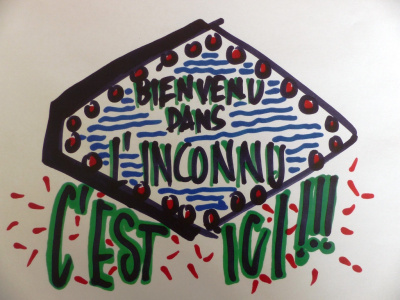 BIENVENU
DANS
L'INCONNU
C'EST ICI!!!